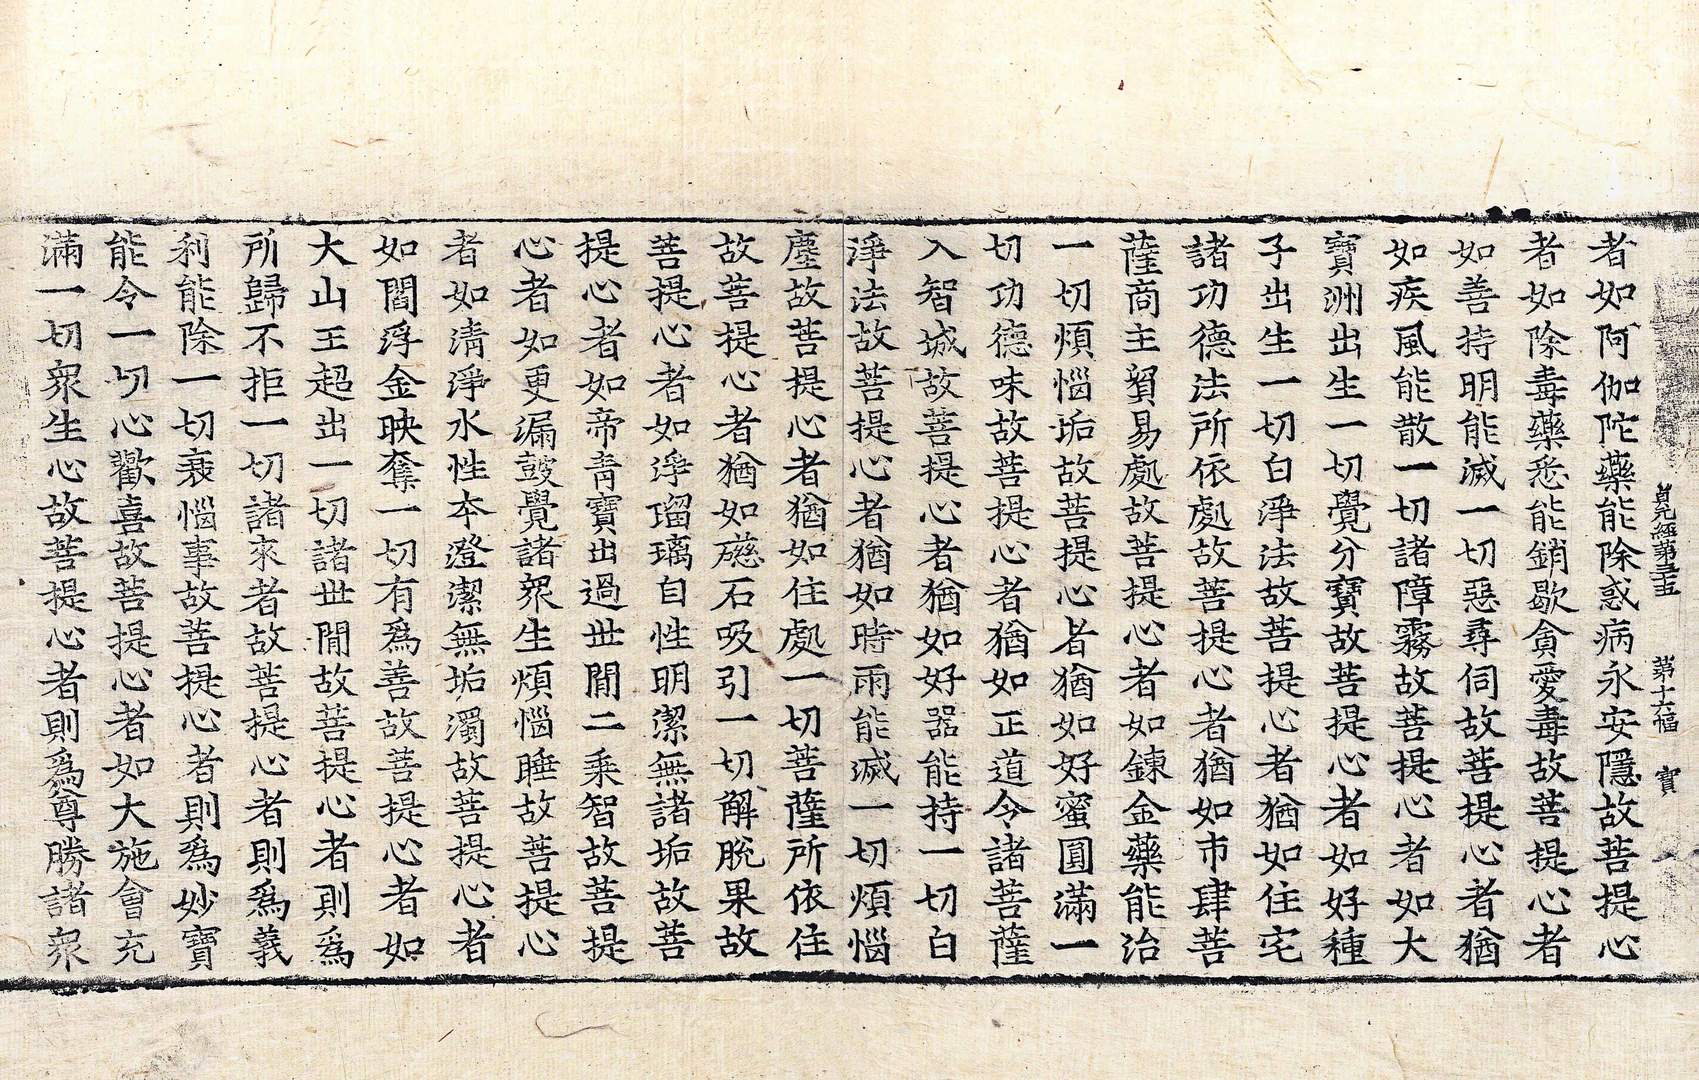 貞元經第三十五　第十六幅　寶
者如阿伽陀藥能除惑病永安隱故菩提心
者如除毒藥悉能銷歇貪愛毒故菩提心者
如善持明能滅一切惡尋伺故菩提心者猶
如疾風能散一切諸障霧故菩提心者如大
寶洲出生一切覺分寶故菩提心者如好種
子出生一切白淨法故菩提心者猶如住宅
諸功德法所依處故菩提心者猶如市肆菩
薩商主貿易處故菩提心者如鍊金藥能治
一切煩惱垢故菩提心者猶如好蜜圓滿一
切功德味故菩提心者猶如正道令諸菩薩
入智城故菩提心者猶如好器能持一切白
淨法故菩提心者猶如時雨能滅一切煩惱
塵故菩提心者猶如住處一切菩薩所依住
故菩提心者猶如磁石吸引一切解脫果故
菩提心者如淨瑠璃自性明潔無諸垢故菩
提心者如帝青寶出過世閒二乘智故菩提
心者如更漏鼓覺諸衆生煩惱睡故菩提心
者如清淨水性本澄潔無垢濁故菩提心者
如閻浮金映奪一切有爲善故菩提心者如
大山王超出一切諸世閒故菩提心者則爲
所歸不拒一切諸來者故菩提心者則爲義
利能除一切衰惱事故菩提心者則爲妙寶
能令一切心歡喜故菩提心者如大施會充
滿一切衆生心故菩提心者則爲尊勝諸衆